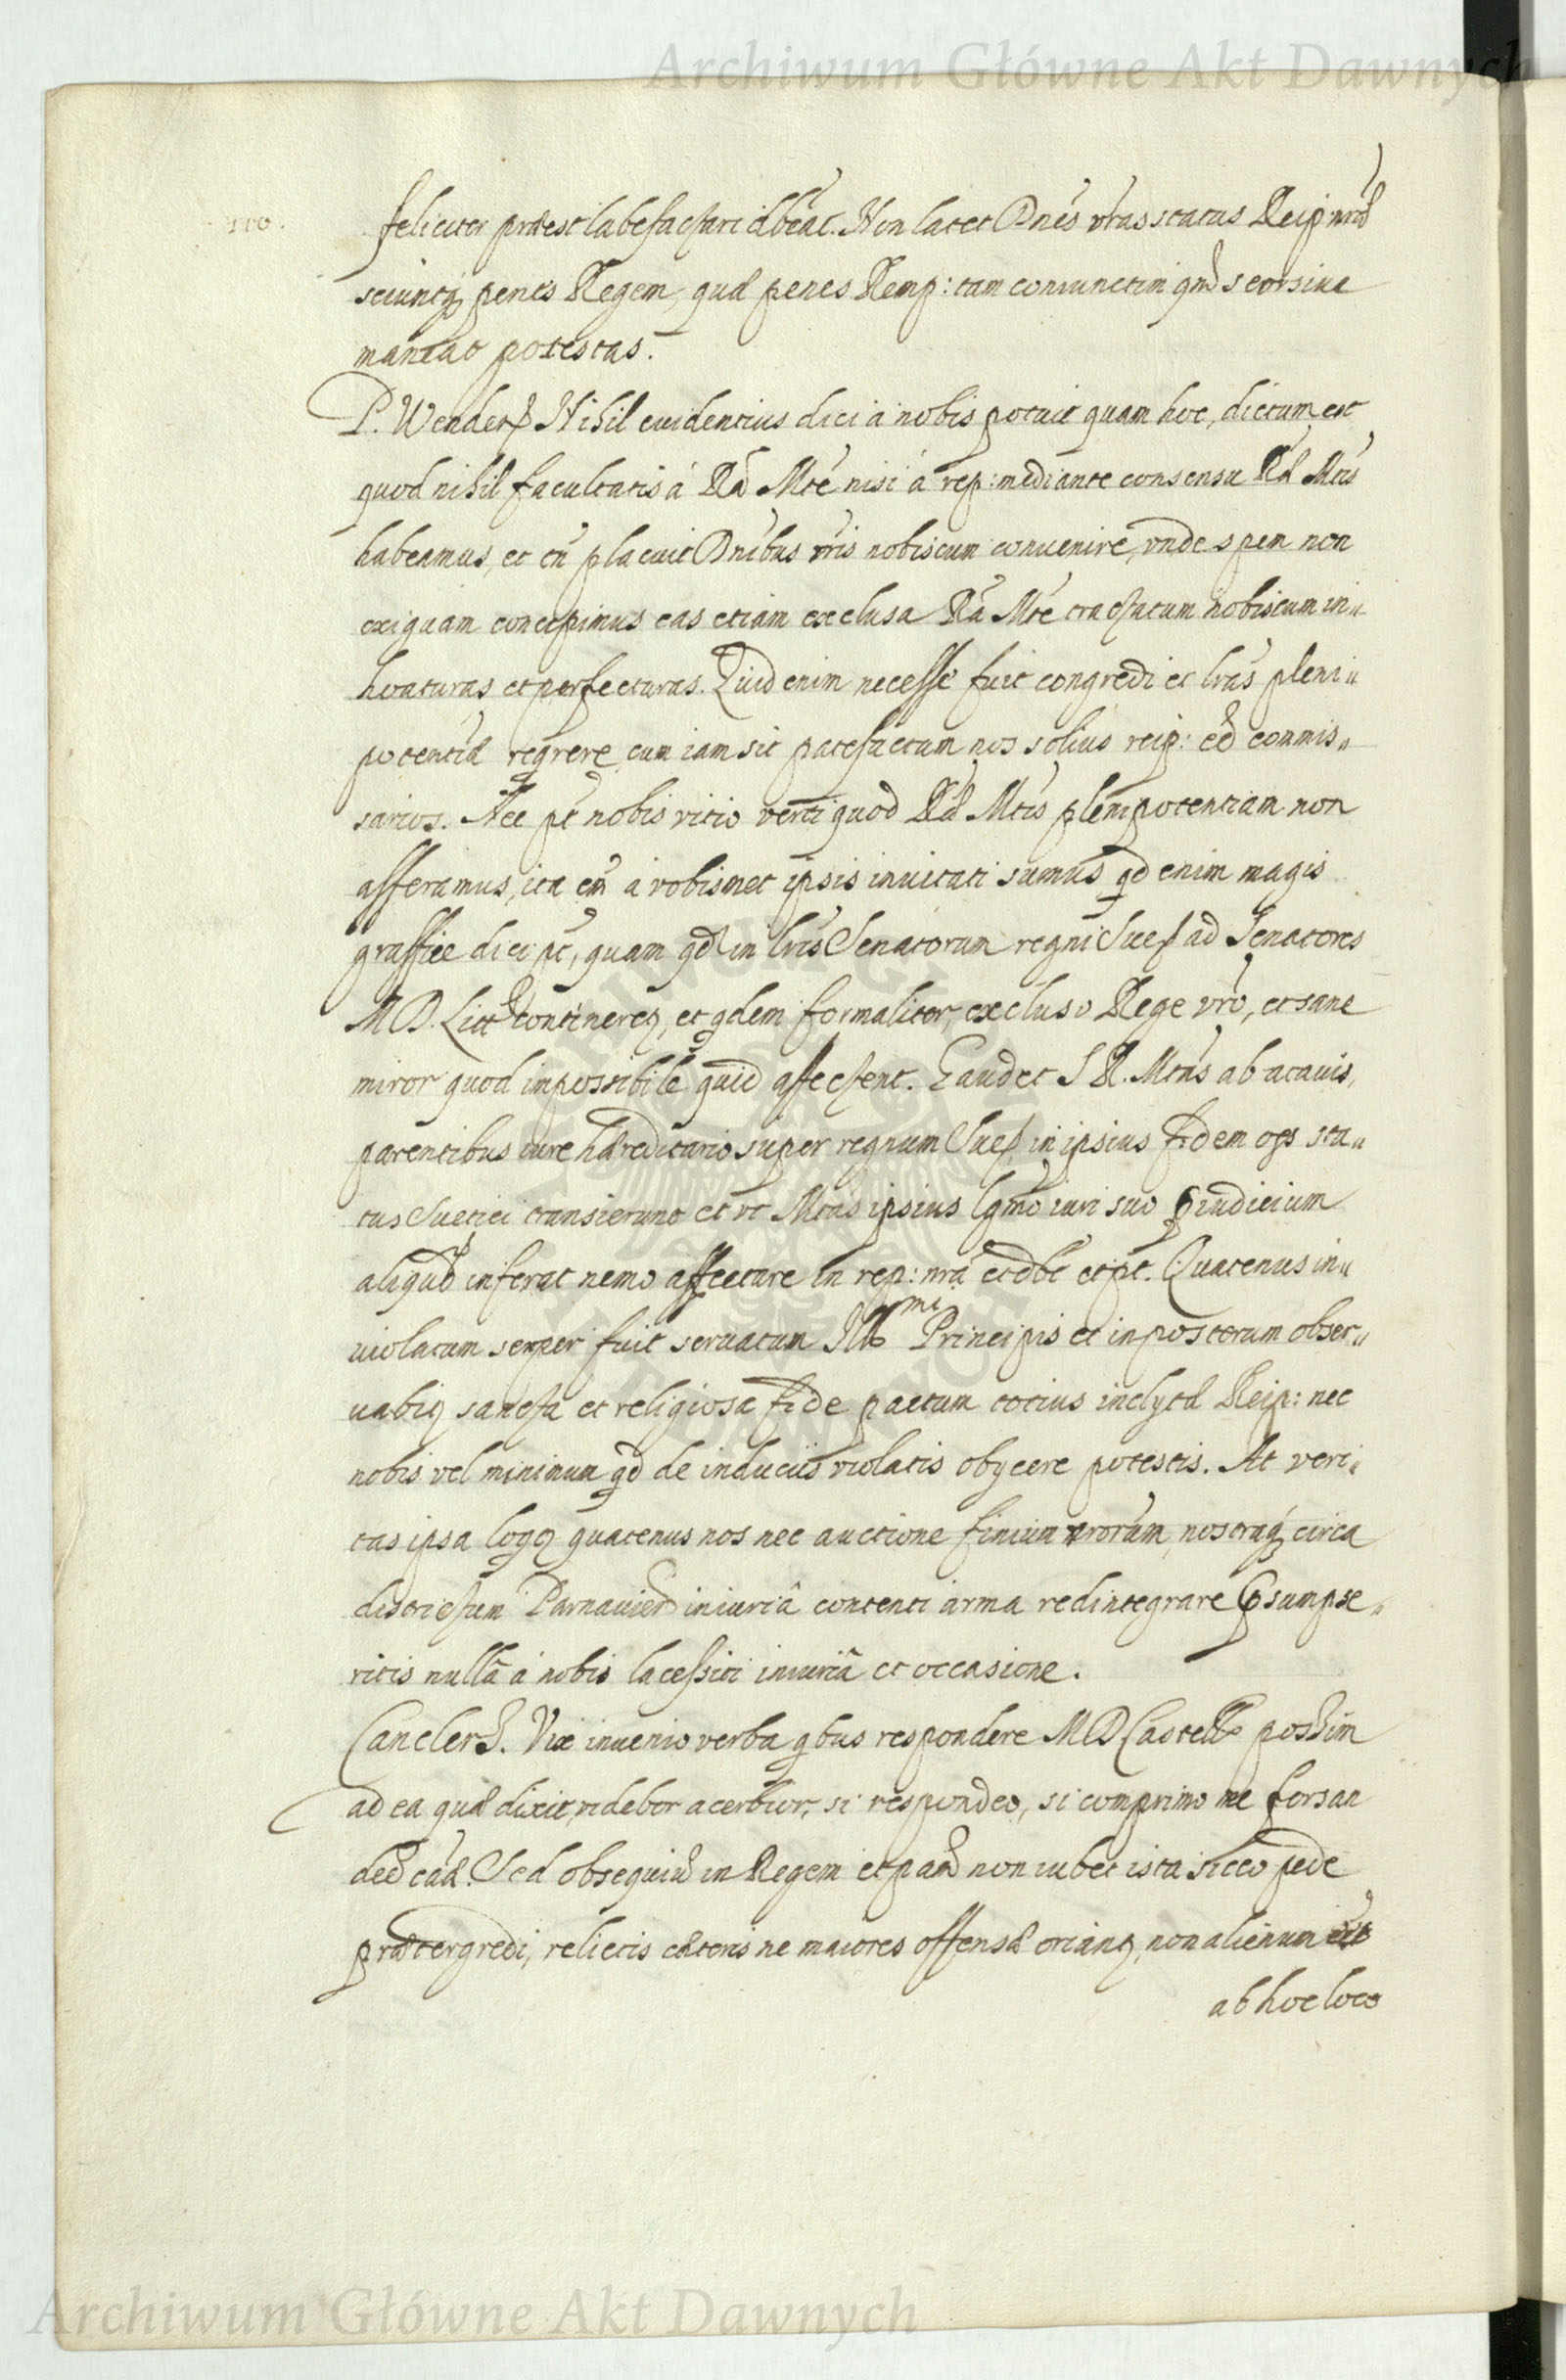 Archiwum Główne Akt Dawnych
110.
feliciter præest labefactari dbéat. Non latet Dnés vras status Reip nræ
sciuntq penes Regem, quæ penes Remp: tam coniunctim qm seorsiue
maneat potestas.
P. Wendeń Nihil euidentius dici à nobis potuit quam hoc, dictum est
quod nihil facultatis á Ra Mte nisi á rep: mediante consensu Ræ Mtis
habeamus, et cu placuit Dnibus vris nobiscum conuenire, vnde spem non
exiguam concepimus eas etiam exclusa Ra Mte tractatum nobiscum in„
hoaturas et perfecturas. Quid enim necesse fuit congredi et lras pleni„
potentiæ reqrere, cum iam sit patefactum nos solius reip: eē commis„
sarios. Nec pt nobis vitio verti quod Ræ Mtis plenipotentiam non
afferamus, ita em a vobismet ipsis inuitati sumus qd enim magis
graffice dici pt, quam qd in lris Senatorum regni Suec ad Senatores
M D. Litt continereq, et qdem formaliter, excluso Rege vro, et sane
miror quod impossibile quid affectent. Gaudet S R. Mtas ab atauis,
parentibus iure hæreditario super regnum Suec, in ipsius fidem oes sta„
tus Suetici transierunt et vt Mtas ipsius lgmo iuri suo pиudicium
aliquod inferat nemo affectare in rep: nra et dbt et pt. Quatenus in„
uiolatum semper fuit seruatum Illmi Principis et in posterum obser„
uabiq sancta et religiosa fide pactum totius inclytæ Reip: nec
nobis vel minimum qd de induciis violatis obycere potestis. At veri„
tas ipsa loqq quatenus nos nec auctione finium vrorum, nostraq circa
districtum Parnauien iniuriâ contenti arma redintegrare psumpse„
ritis nullâ á nobis lacessiti iniuriâ et occasione.
Canclers. Vix inuenio verba qbus respondere MD Castello possim
ad ea quæ dixit, videbor acerbior, si respondeo, si comprimo me forsan
deē cæ. Sed obsequiu in Regem et pam non iubet ista sicco pede
prætergredi, relictis cæteris ne maiores offensæ orianq, non alienum erit
ab hoc loco
Archiwum Główne Akt Dawnych